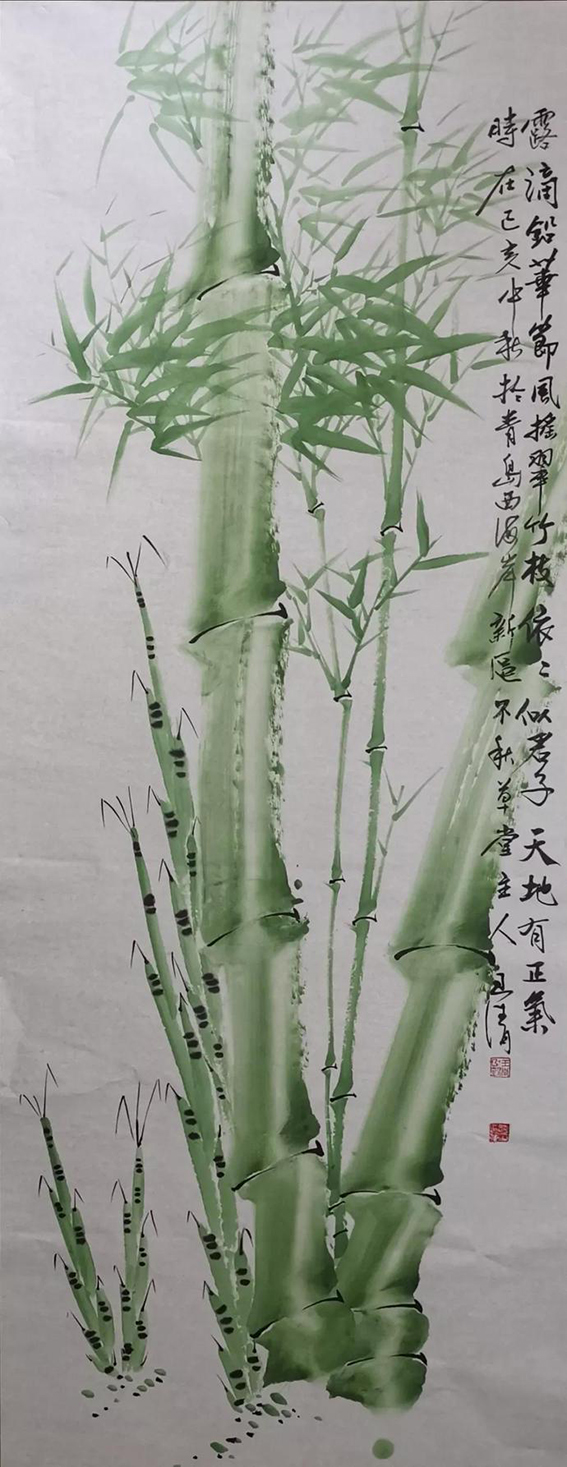 露滴铅華節風摇翠竹枝依〻似君子天地有正氣
時在己亥中秋於青島西海岸新區不秋草堂主人